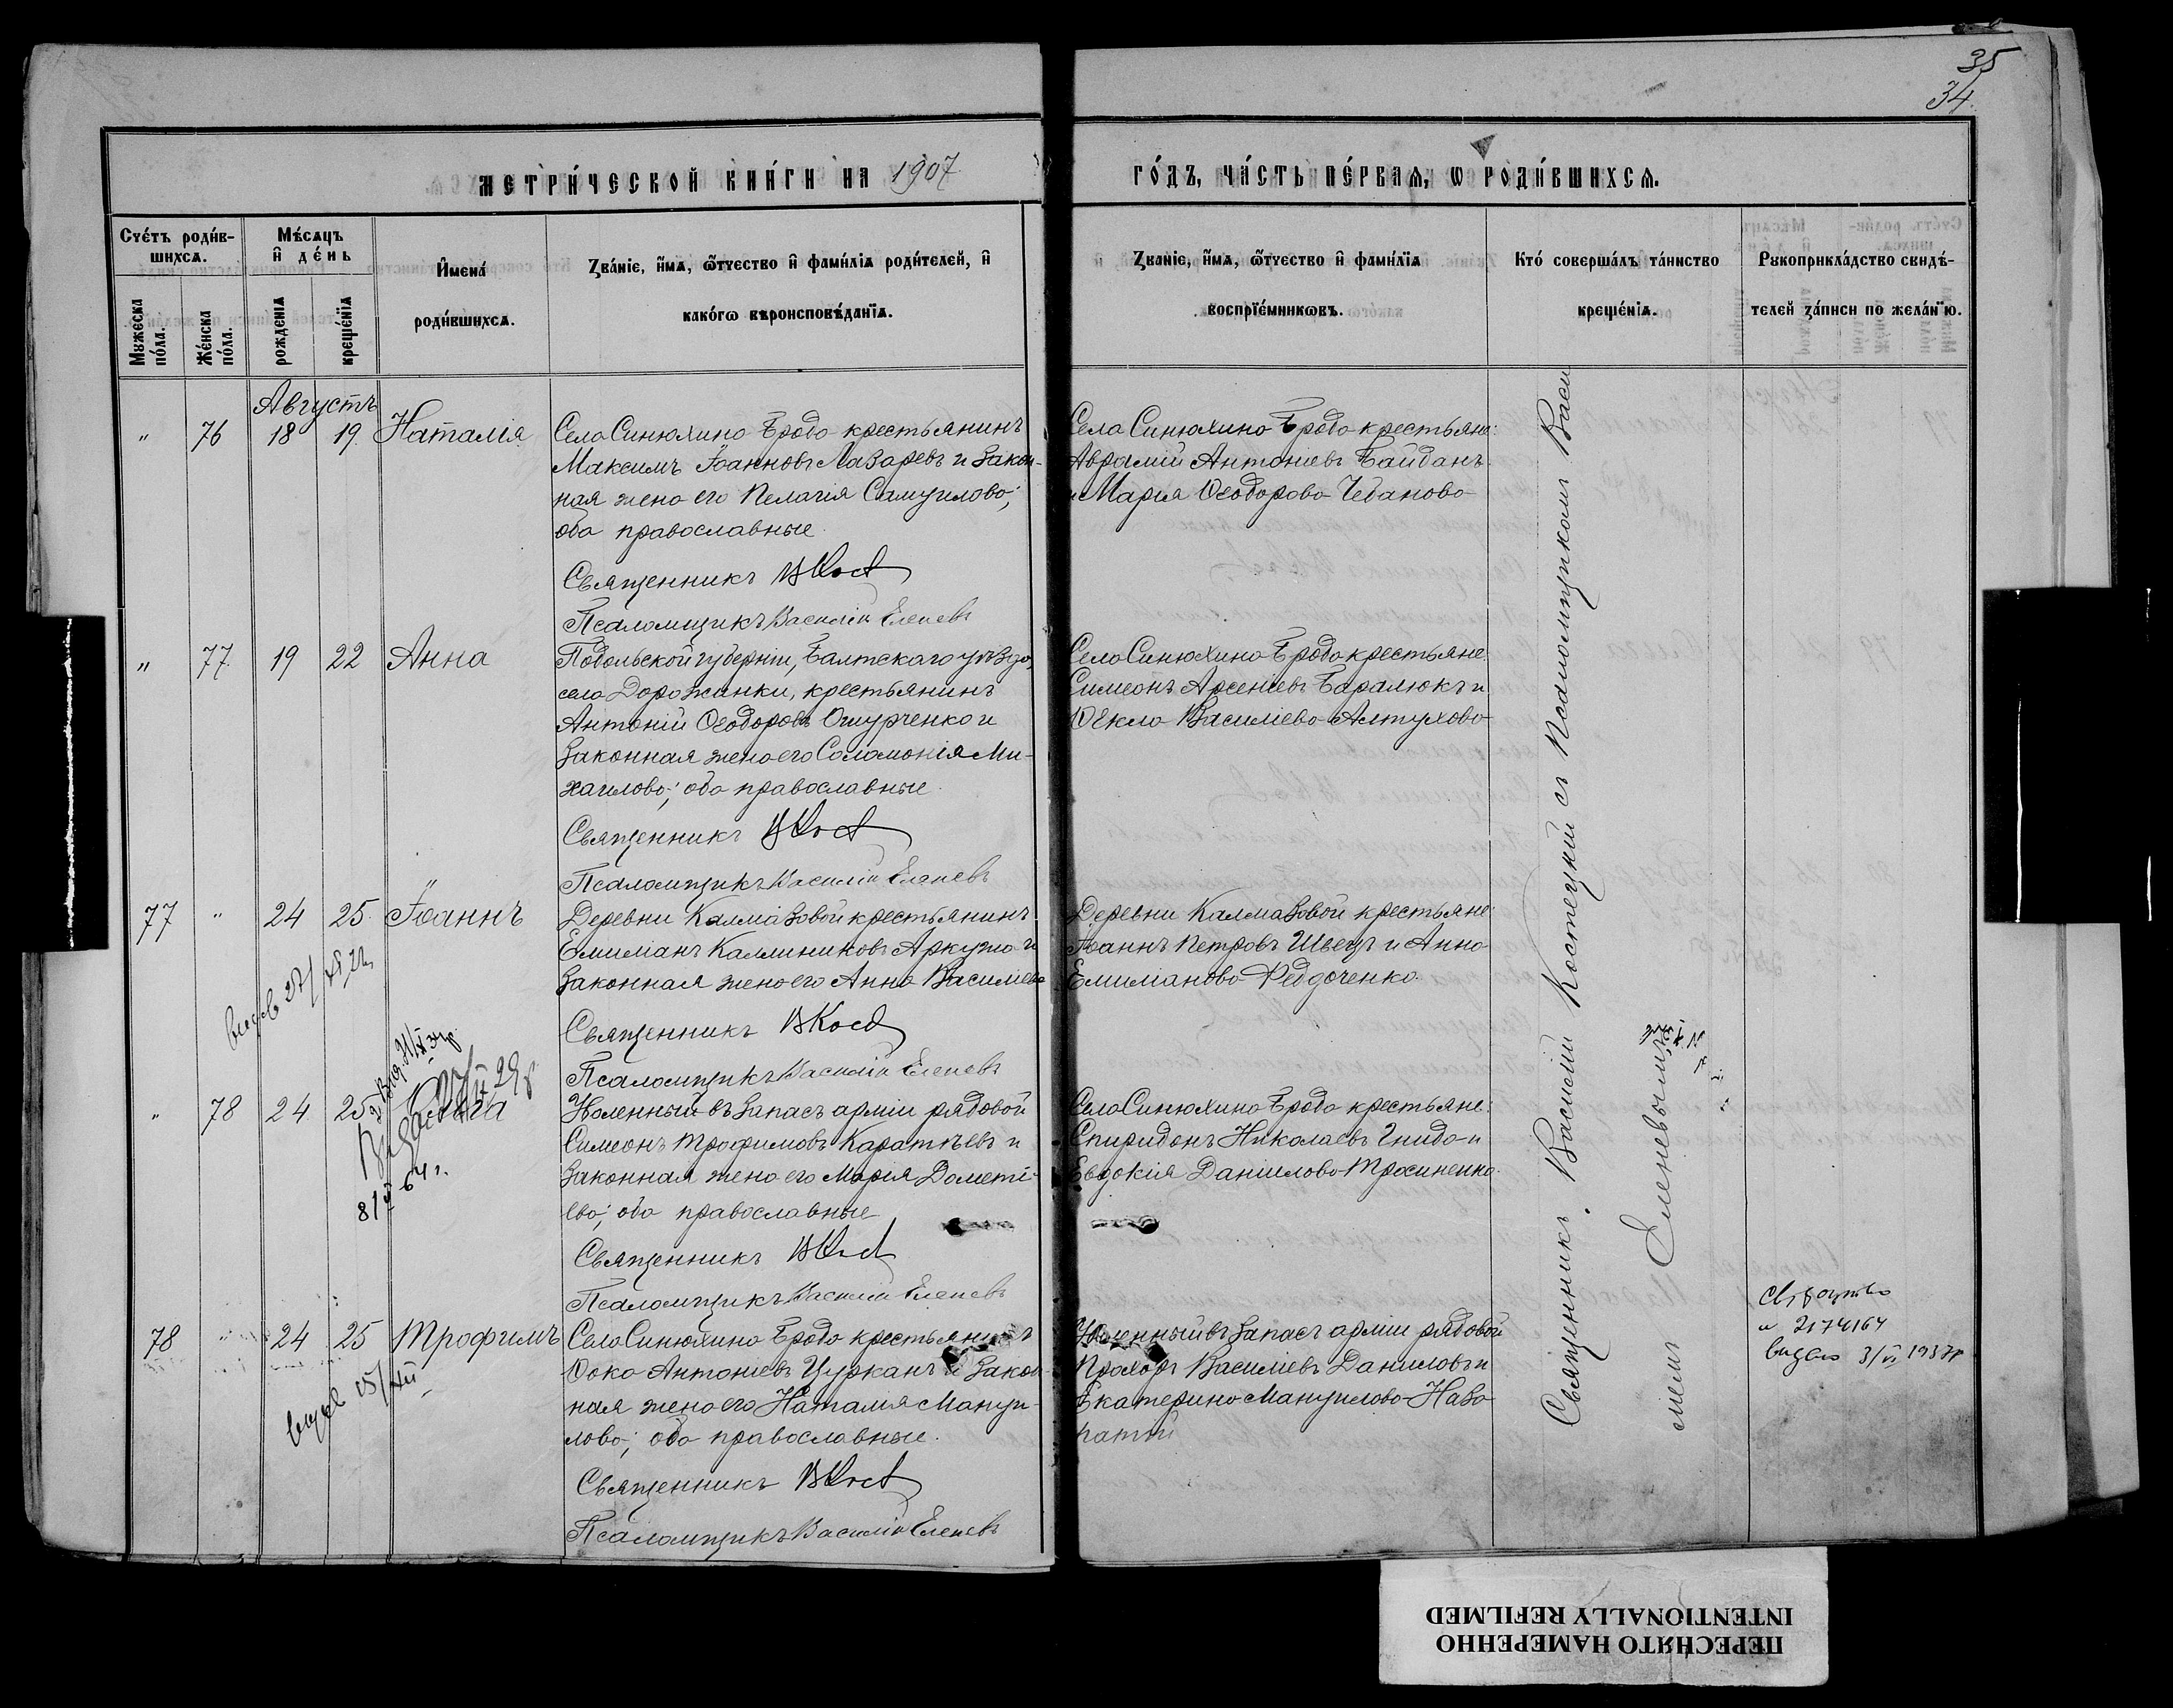 35
34
МЕТРИ́ЧЕСКОЙ КНИ́ГИ НА 1907
ГО́ДЪ, ЧА́СТЬ ПЕ́РВАѦ, Ѡ РОДИ́ВШИХСѦ.
Счéтъ роди́в-
шихсѧ.
Мужеска пóла.
Жéнска пóла.
Мѣ́сѧцъ
и҆ дéнь
рождéнїѧ
крещéнїѧ
И҆мена́
роди́вшихсѧ.
Зва́нїе, и҆́мѧ, ѻ҆́тчество и҆ фами́лїѧ роди́телей, и҆
како́гѡ вѣроисповѣ́данїѧ.
Зва́нїе, и҆́мѧ, ѻ҆́тчество и҆ фами́лїѧ
воспрїе́мникѡвъ.
Кто́ соверша́лъ та́инство
креще́нїѧ.
Рꙋкоприкла́дство свидѣ́-
телей за́писи по жела́нїю.
Августъ
" 76 18 19 Наталія
Села Синюхина Брода крестьянинъ
Максимъ Іоанновъ Лазаревъ и закон-
ная жена его Пелагія Самуилова;
оба православные.
Священникъ ВКост
Псаломщикъ Василій Еленевъ
Села Синюхина Брода крестьяне:
Аврамій Антоніевъ Байданъ
и Марія Ѳеодорова Чебанова
" 77 19 22 Анна
Подольской губерніи, Балтскаго уѣзда,
села Дорожинки, крестьянинъ
Антоній Ѳеодоровъ Ошурченко и
законная жена его Соломонія Ми-
хаилова; оба православные.
Священникъ ВКост
Псаломщикъ Василій Еленевъ
Села Синюхина Брода крестьяне:
Симеонъ Арсеніевъ Баралюкъ и
Ѳекла Василіева Алтухова
77 " 24 25 Іоаннъ
Деревни Калмазовой крестьянинъ
Емиліанъ Каллиниковъ Аркуша и
законная жена его Анна Василіева
Священникъ ВКост
Псаломщикъ Василій Еленевъ
Деревни Калмазовой крестьяне:
Іоаннъ Петровъ Швецъ и Анна
Емиліанова Федоченко.
" 78 24 25
8/V 64 г.
Уволенный въ запасъ арміи рядовой
Симеонъ Трофимовъ Каратѣевъ и
законная жена его Марія Дометі-
ева; оба православные
Священникъ ВКост
Псаломщикъ Василій Еленевъ
Села Синюхина Брода крестьяне:
Спиридонъ Николаевъ Гнида и
Евдокія Даніилова Тросиненко.
78 " 24 25 Трофимъ
Села Синюхина Брода крестьянинъ
Ѳока Антоніевъ Цурканъ и закон-
ная жена его Наталія Мануи-
лова; оба православные.
Священникъ ВКост
Псаломщикъ Василій Еленевъ
Уволенный въ запасъ арміи рядовой
Прохоръ Василіевъ Даниловъ и
Екатерина Мануилова
Священникъ Василій Костецкій съ Псаломщикомъ Васи
ліемъ Еленевымъ
2174164
3/VI 1937г
ПЕРЕСНЯТО НАМЕРЕННО
INTENTIONALLY REFILMED